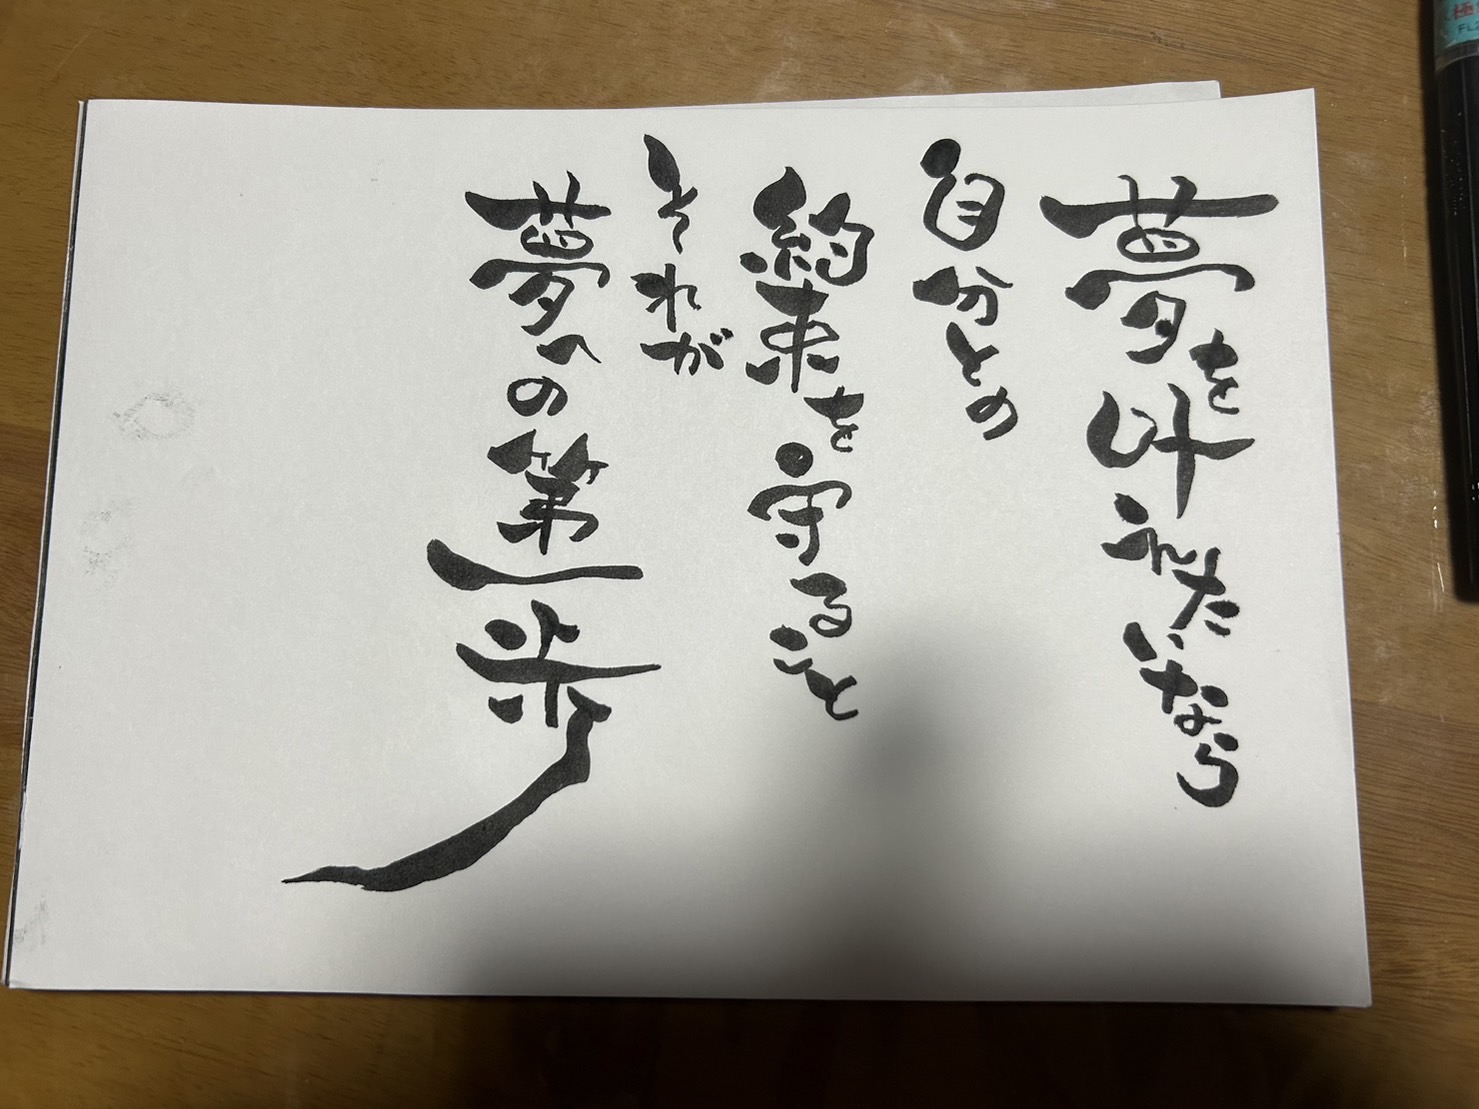 夢を叶えたいなら
自分との
約束を守ること
それが
夢への第一歩
極
FL